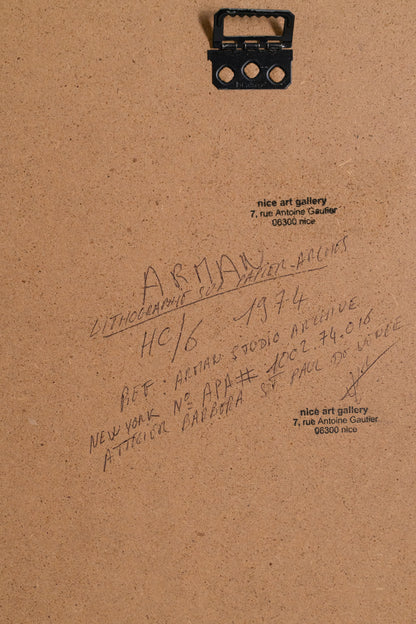 nice art gallery
7, rue Antoine Gautier
06300 nice
ARMAN
LITHOGRAPHIE SUR PAPIER ARCHES
HC/6 1974
REF. ARMAN STUDIO ARCHIVE
NEW YORK No APA# 1002.74.016
ATTELIER BARBORA ST PAUL DE VENCE
nice art gallery
7, rue Antoine Gautier
06300 nice